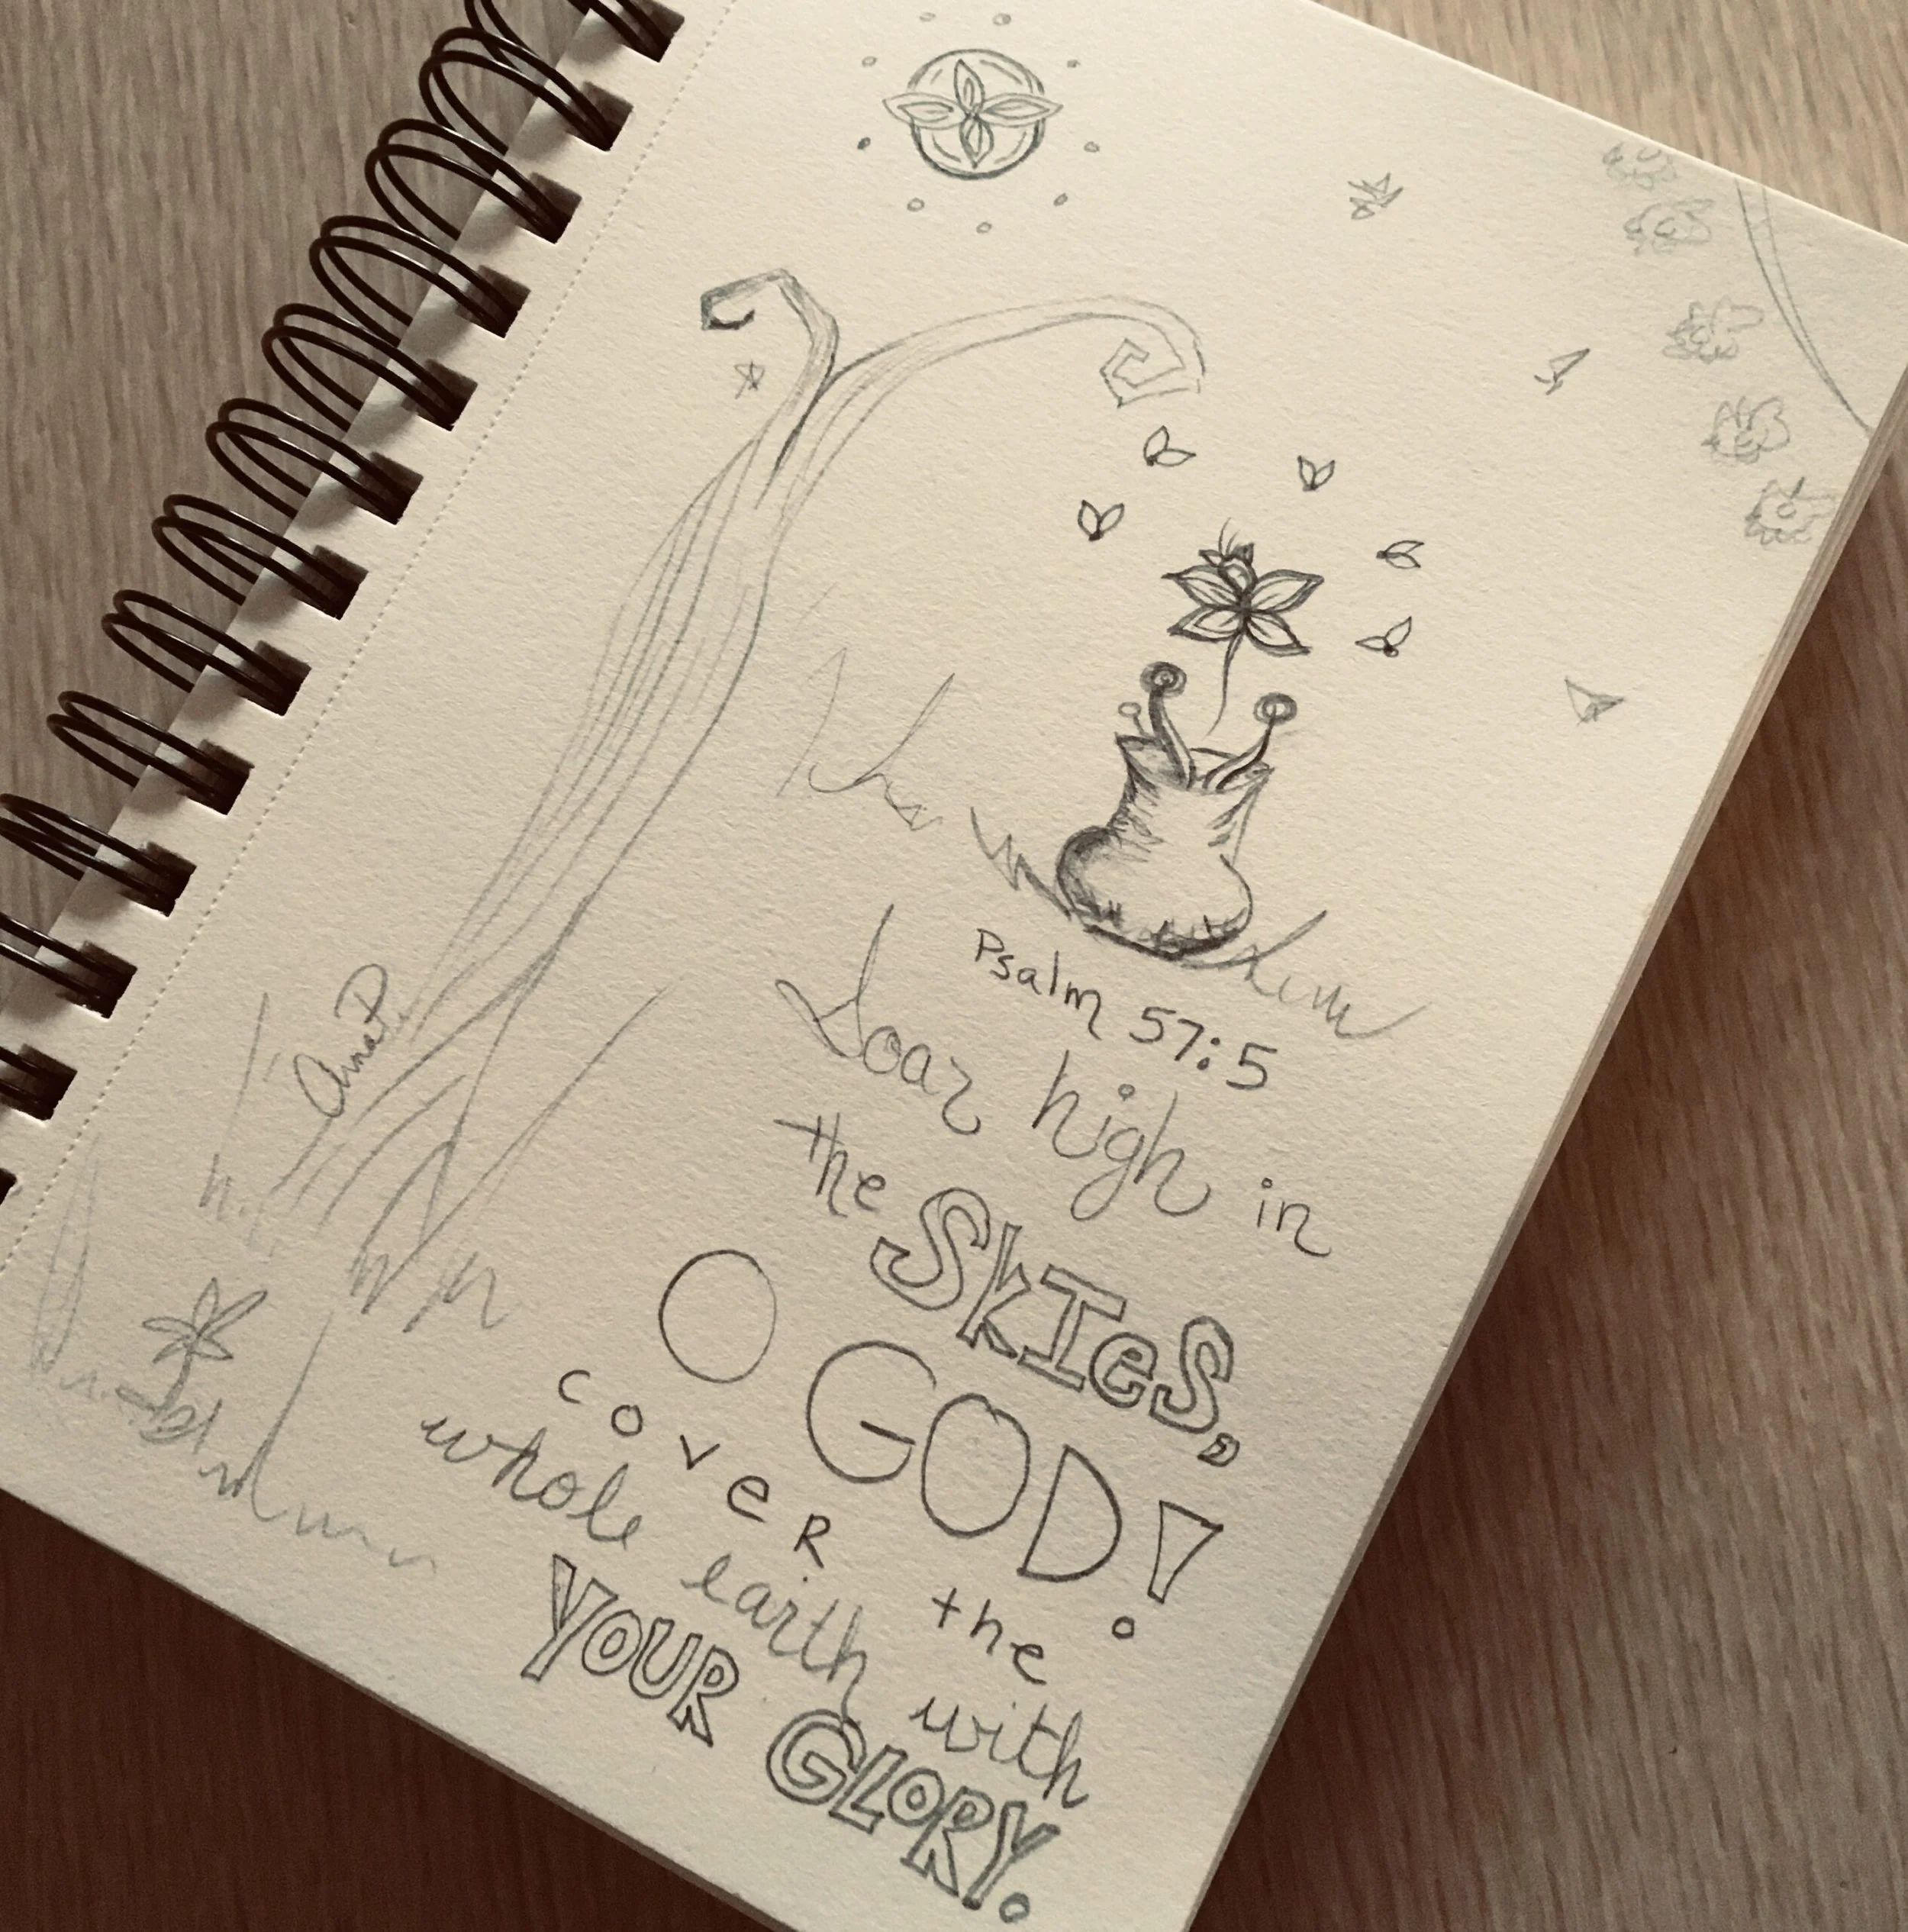 Psalm 57:5
Soar high in
the SkIes,
O GOD!
coveR the
whole earth with
YOUR GLORY.
Ana P.